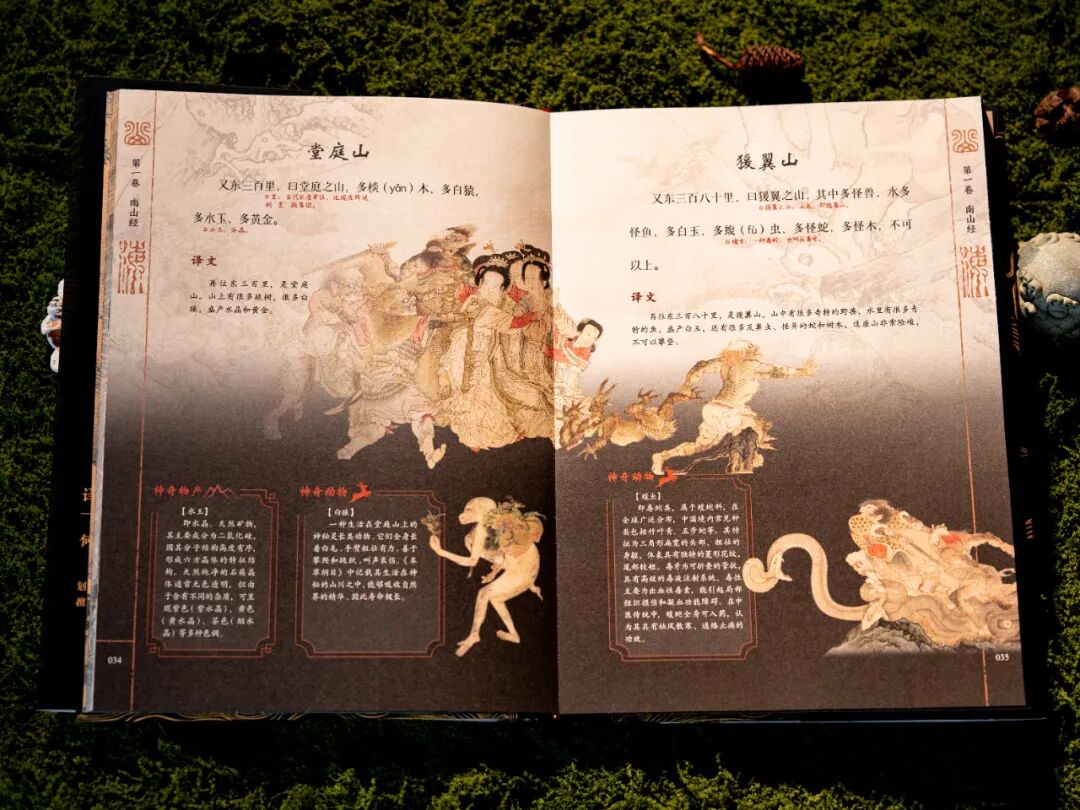 第一卷 南山经
堂庭山
又东三百里，曰堂庭之山，多棪（yǎn）木，多白猿，
多水玉，多黄金。
译文
再往东三百里，是堂庭
山。山上有很多棪树，很多白
猿，盛产水晶和黄金。
神奇物产
【水玉】
即水晶。天然矿物，
其主要成分为二氧化硅，
因其分子结构高度有序，
形成六方晶体的特征结
构。天然纯净的石英晶
体通常无色透明，但由
于含有不同的杂质，可呈
现紫色（紫水晶）、黄色
（黄水晶）、茶色（烟水
晶）等多种色调。
神奇动物
【白猿】
一种生活在堂庭山上的
神秘灵长类动物，它们全身长
着白毛，手臂粗壮有力，善于
攀爬和跳跃，叫声哀伤。《本
草纲目》中记载其生活在神
秘的山川之中，能够吸收自然
界的精华，因此寿命极长。
034
猨翼山
又东三百八十里，曰猨翼之山，其中多怪兽，水多
怪鱼，多白玉，多蝮（fù）虫，多怪蛇，多怪木，不可
以上。
译文
再往东三百八十里，是猨翼山。山中有很多奇特的野兽，水里有很多奇
特的鱼，盛产白玉，还有很多反鼻虫、怪异的蛇和树木。这座山非常险峻，
不可以攀登。
神奇动物
【蝮虫】
即毒蛇类，属于蝮蛇科，在
全球广泛分布，中国境内常见种
类包括竹叶青、五步蛇等。其特
征为三角形扁宽的头部，粗壮的
身躯，体表具有独特的菱形花纹，
尾部较短。毒牙为可折叠的管状，
具有高效的毒液注射系统，毒性
主要为出血性毒素，能引起局部
组织损伤和凝血功能障碍。在中
医传统中，蝮蛇全身可入药，认
为其具有祛风散寒、通络止痛的
功效。
第一卷 南山经
035